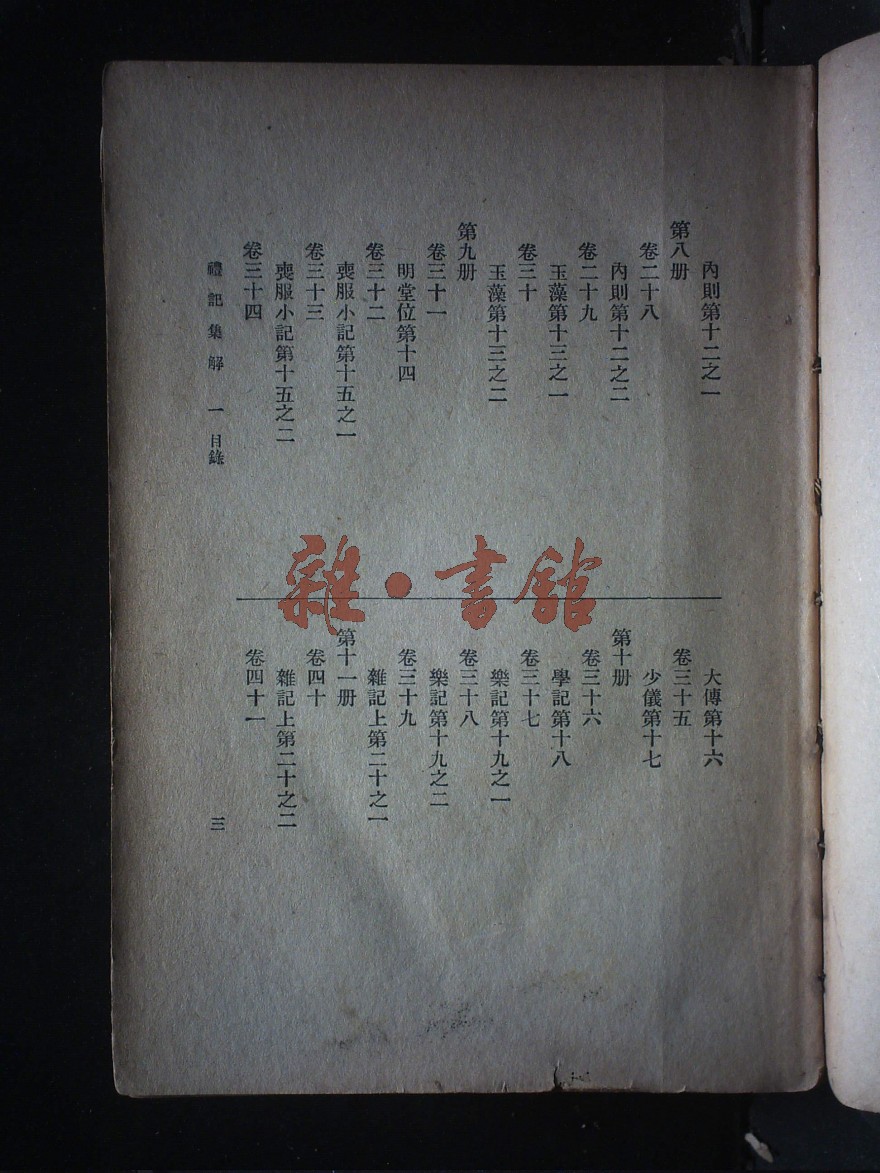 內則第十二之一
第八册
卷二十八
內則第十二之二
卷二十九
玉藻第十三之一
卷三十
玉藻第十三之二
第九册
卷三十一
明堂位第十四
卷三十二
喪服小記第十五之一
卷三十三
喪服小記第十五之二
卷三十四
大傳第十六
卷三十五
少儀第十七
第十册
卷三十六
學記第十八
卷三十七
樂記第十九之一
卷三十八
樂記第十九之二
卷三十九
雜記上第二十之一
第十一册
卷四十
雜記上第二十之二
卷四十一
禮記集解 一 目錄
三
雜·書館